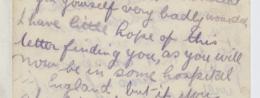 yourself very badly wounded
I have little hope of this
letter finding you, as you will
now be in some hospital
England but if you